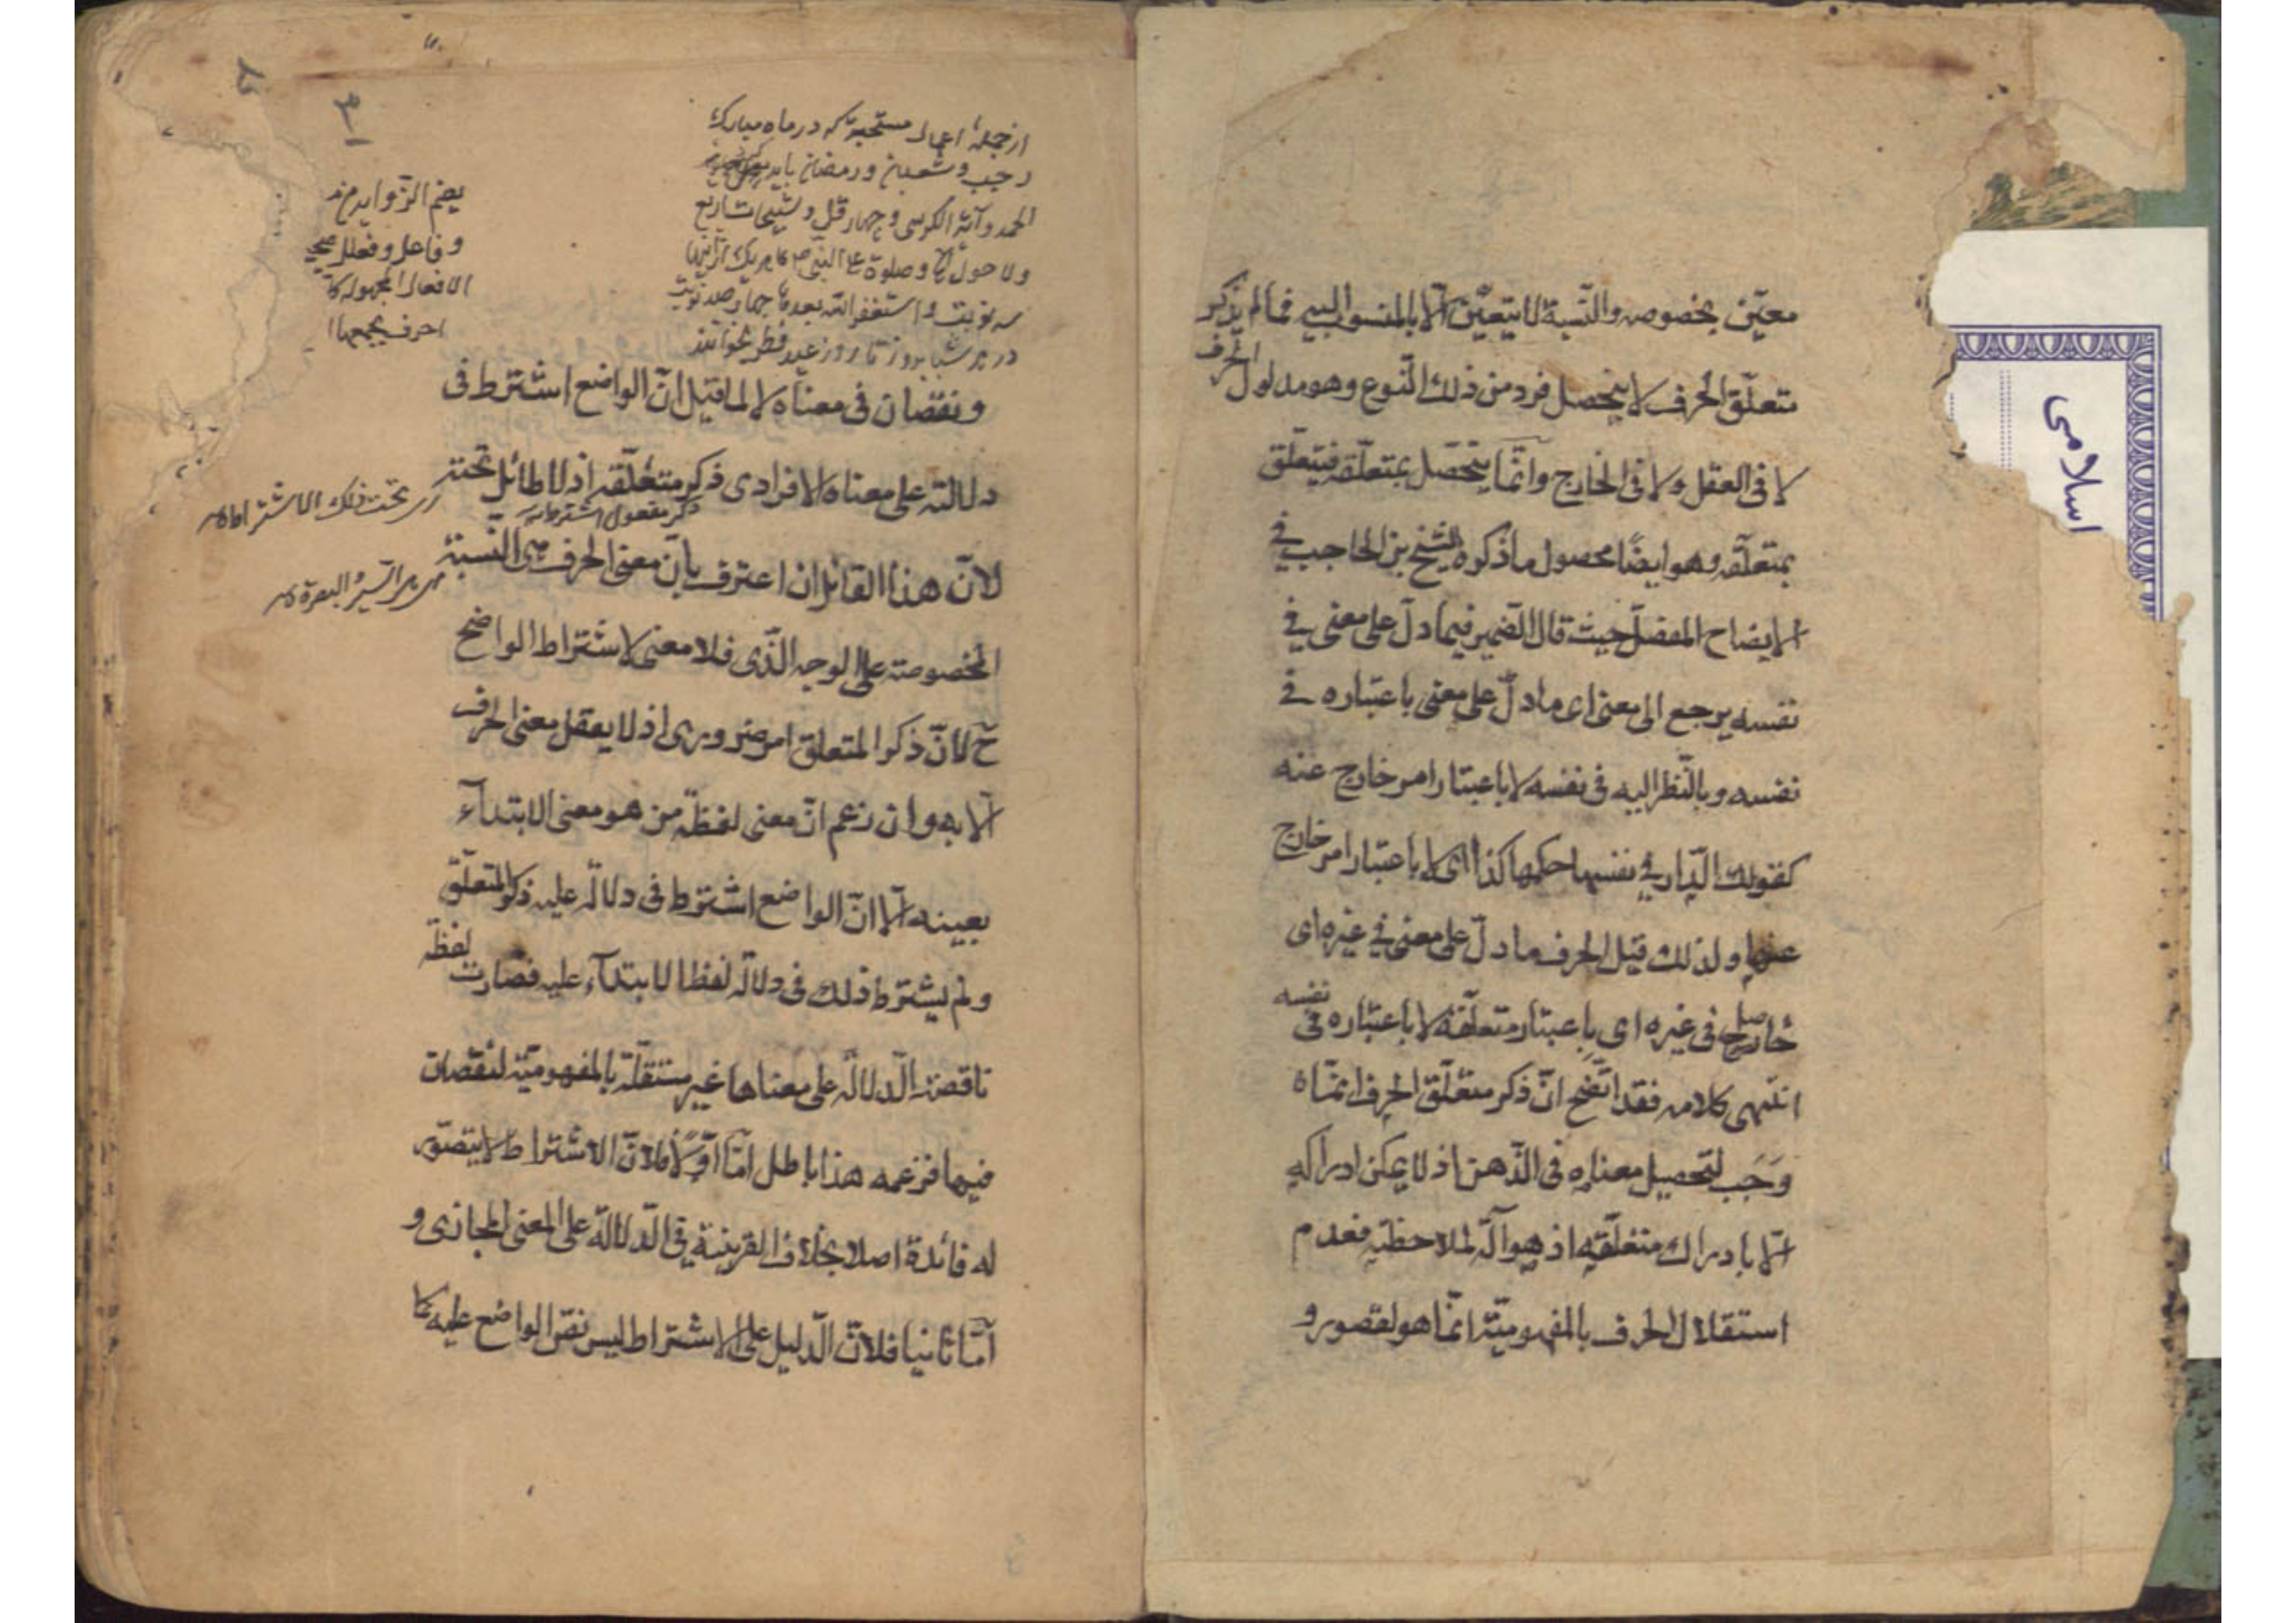 معيّن بخصوصه والنّسبة لا يتعيّن الّا بالمنسوب اليه فما لم يذكر
متعلّق الحرف لا يتحصل فرد من ذلك النّوع وهو مدلول الحرف
لا فى العقل ولا فى الخارج وانّما يتحصّل بمتعلّقه فيتعلّق
بمتعلّقه وهو ايضًا محصول ما ذكره الشيخ بن الحاجب فى
الايضاح المفصّل حيث قال الضمير فيما دلّ على معنى فى
نفسه يرجع الى معنى اى ما دلّ على معنى باعتباره فى
نفسه وبالنّظر اليه فى نفسه لا باعتبار امر خارج عنه
كقولك الدّار فى نفسها حكمها كذا اى لا باعتبار امر خارج
عنها ولذلك قيل الحرف ما دلّ على معنى فى غيره اى
حاصل فى غيره اى باعتبار متعلّقه لا باعتباره فى نفسه
انتهى كلامه فقد اتّضح انّ ذكر متعلّق الحرف انّما
وَجَب لتحصيل معناه فى الذّهن اذ لا يمكن ادراكه
الّا بادراك متعلّقه اذ هو آلة لملاحظته فعدم
استقلال الحرف بالمفهوميّة انّما هو لقصور و
اسلامى
٣
ازجملهٔ اعمال مستحبة كه در ماه مبارك
رجب وشعبان ورمضان بايد
الحمد وآية الكرسى وچهار قل وتسبيحات اربع
ولا حول وصلوة على النّبى هريك از اينها
سه نوبت و استغفر الله بعد چهار صد نوبت
در هر شبانه روز تا روز عيد فطر بخوانند
يضم الزّوايد من
وفاعل وفعلل
الافعال المجهولة
احرف يجمعها
ونقصان فى معناه لا لما قيل انّ الواضع اشترط فى
دلالته على معناه الافرادى ذكر متعلّقه اذ لا طائل تحته
ذكر مفعول اشترط
اى تحت ذلك الاشتراط
لانّ هذا القائل ان اعترف بانّ معنى الحرف هى النّسبة
بين السّير والبصرة
المخصوصة على الوجه الّذى فلا معنى لاشتراط الواضح
ح لانّ ذكر المتعلق امر ضرورى اذ لا يعقل معنى الحرف
الّا به وان زعم انّ معنى لفظة من هو معنى الابتدآء
بعينه الّا انّ الواضع اشترط فى دلالته عليه ذكر المتعلّق
ولم يشترط ذلك فى دلالة لفظ الابتدآء عليه فصارت لفظة
ناقصة الّدلالة على معناها غير مستقلّة بالمفهوميّة لنقصان
فيها فزعمه هذا باطل امّا اوّلًا فلانّ الاشتراط لا يتصّور
له فائدة اصلا بخلاف القرينة فى الدّلالة على المعنى المجازى و
امّا ثانيا فلانّ الدّليل على الاشتراط ليس نصّ الواضع عليه